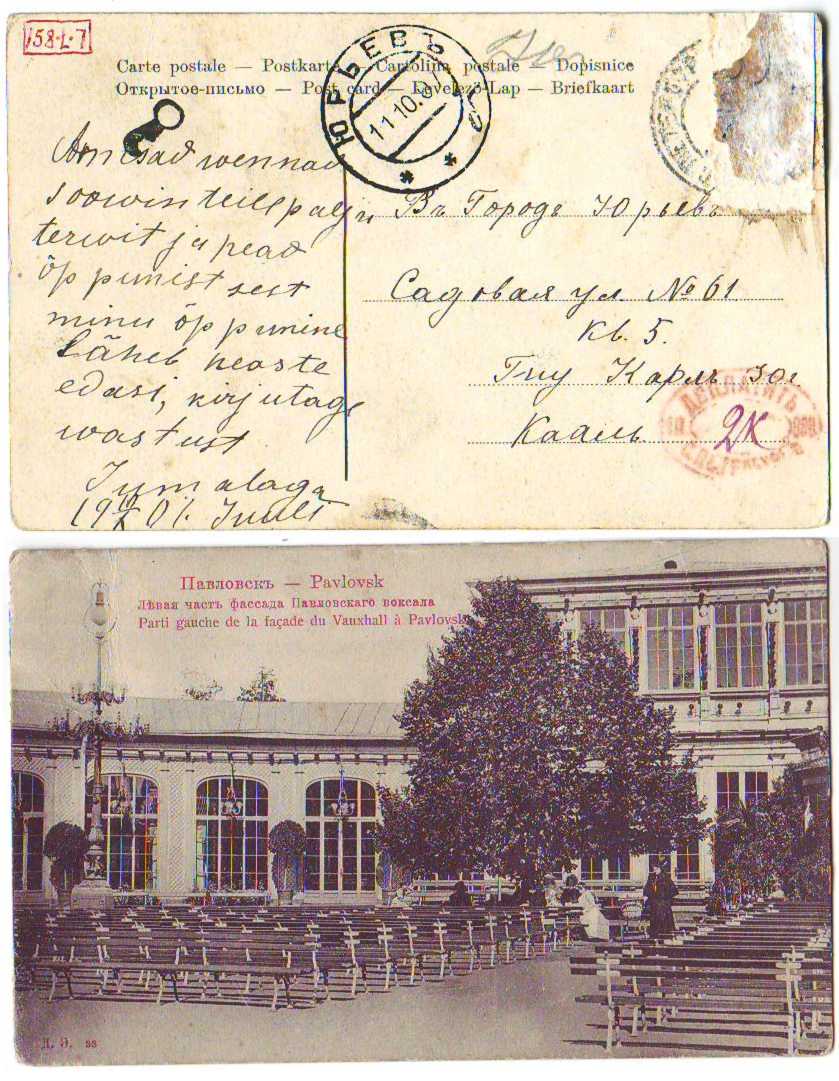 158-L-7
Carte postale — Postkarte — Cartolina postale — Dopisnice
Открытое-письмо — Post card — Levelező-Lap — Briefkaart
ЮРЬЕВЪ
11 10
Armsad wennad
soowin teile palju
terwit ja head
õppimist sest
minu õppimine
Läheb heaste
edasi, kirjutage
wastust
Jumalaga
Въ Городъ Юрьевъ
Садовая ул. № 61
Кв. 5.
Гну Карлъ
Каалъ
ДОПЛАТИТЬ
2К
Павловскъ — Pavlovsk
Лѣвая часть фассада Павловскаго воксала
Parti gauche de la façade du Vauxhall à Pavlovsk
Д. Э. 28